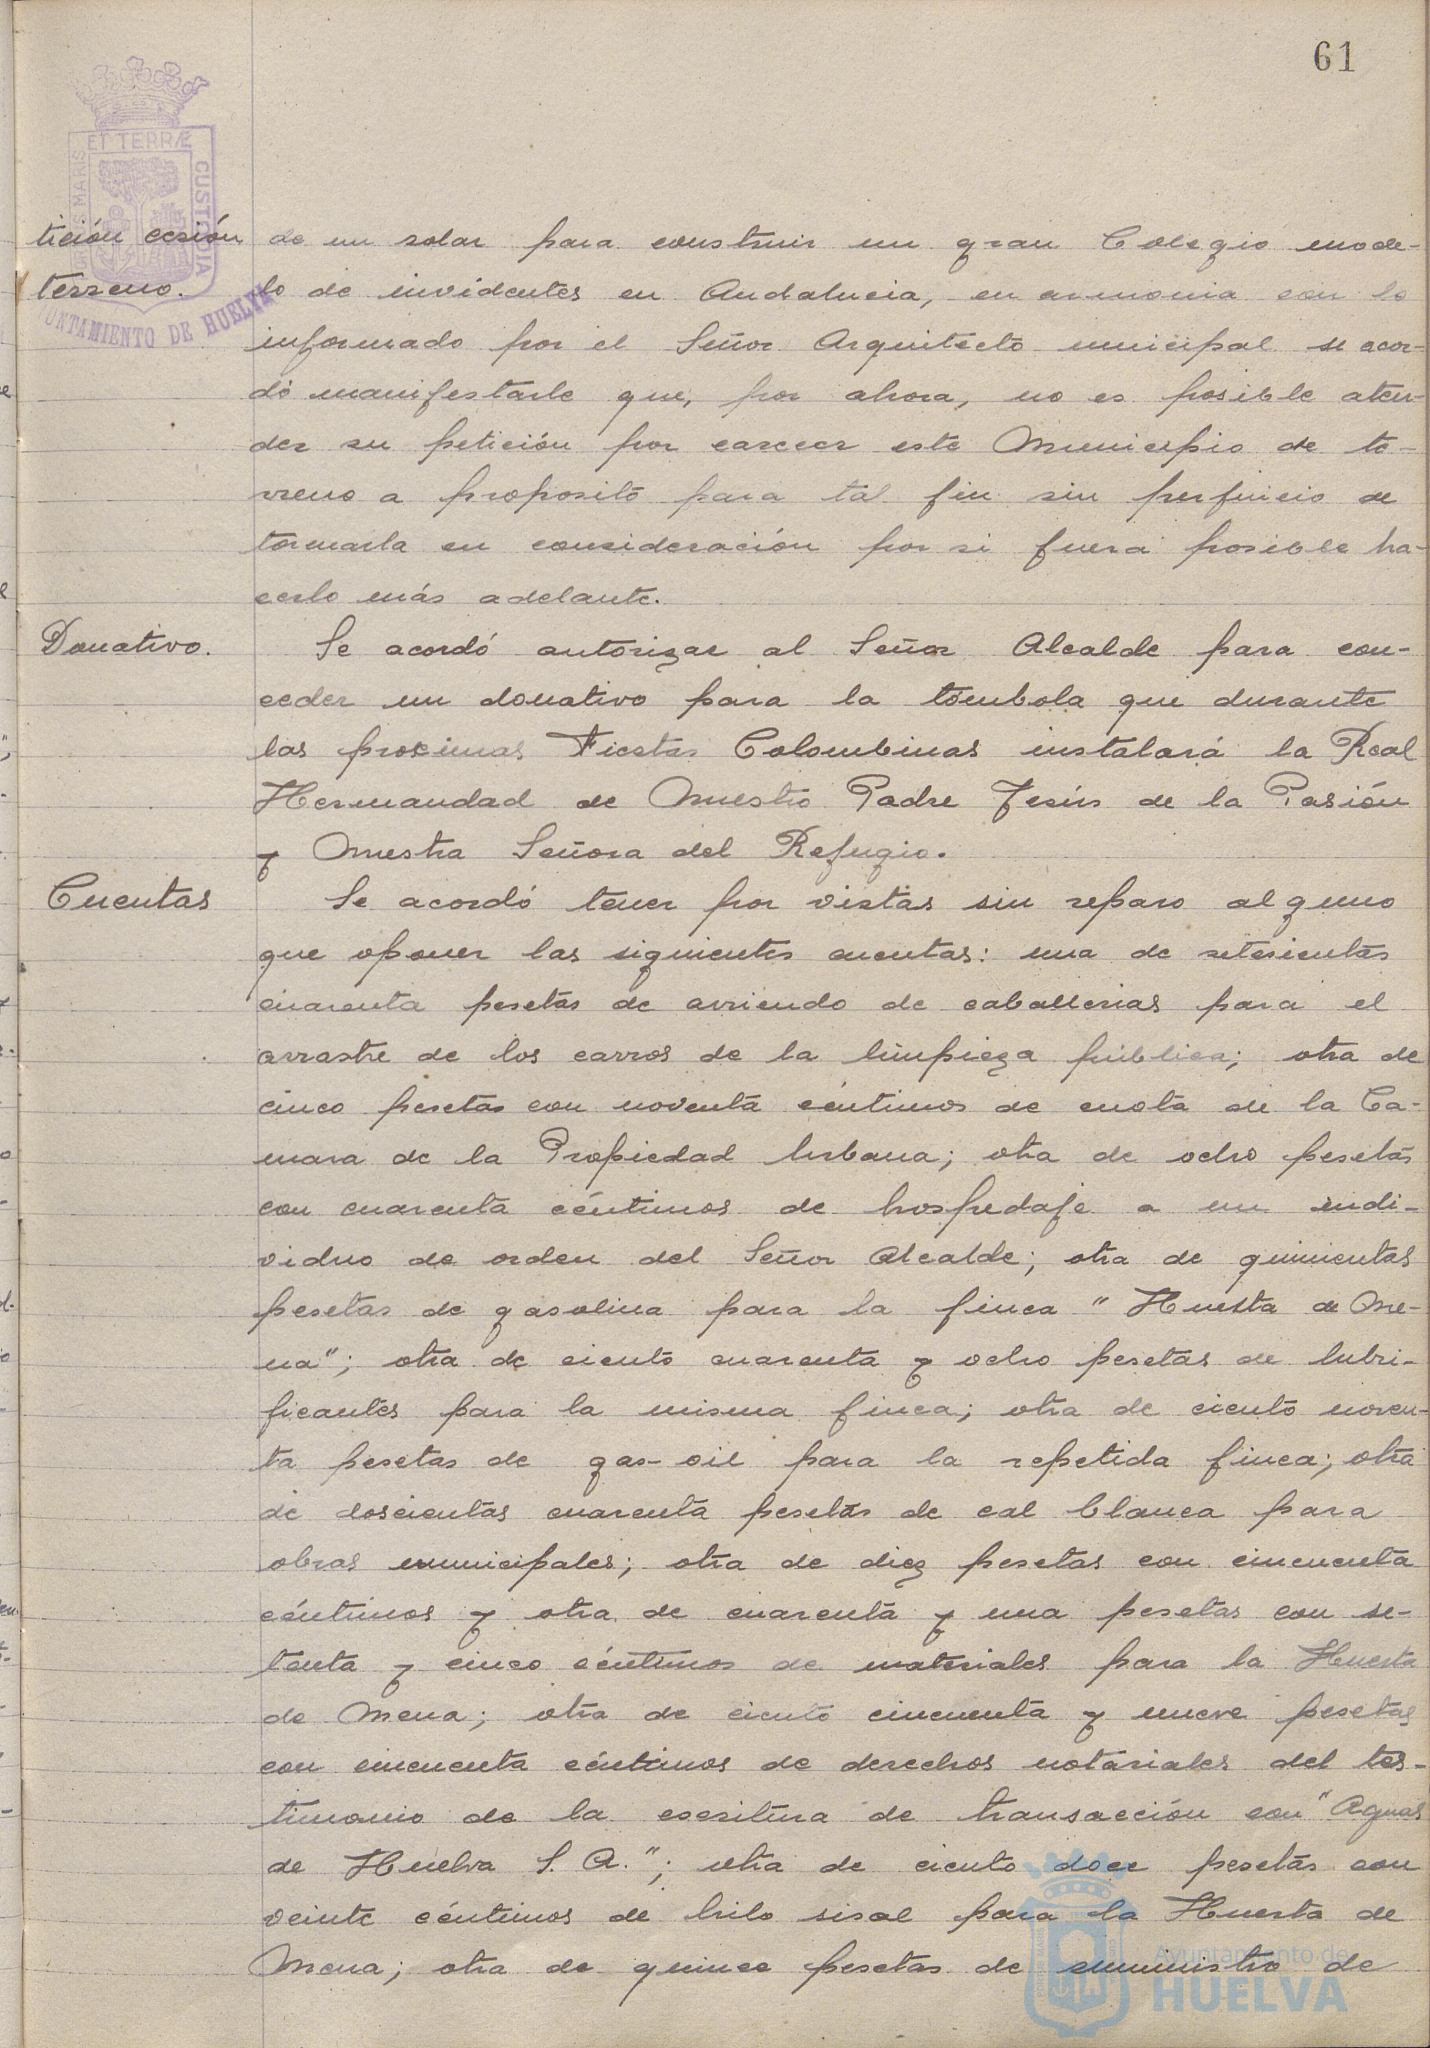 61
ET TERRÆ
CUSTODIA
MARIS
AYUNTAMIENTO DE HUELVA
tición cesión
terreno.
de un solar para construir un gran Colegio mode-
lo de invidentes en Andalucia, en armonia con lo
informado por el Señor Arquitecto municipal se acor-
dó manifestarle que, por ahora, no es posible aten-
der su petición por carecer este Municipio de te-
rreno a proposito para tal fin sin perjuicio de
tomarla en consideración por si fuera posible ha-
cerlo más adelante.
Donativo.
Se acordó autorizar al Señor Alcalde para con-
ceder un donativo para la tómbola que durante
las proximas Fiestas Colombinas instalará la Real
Hermandad de Nuestro Padre Jesús de la Pasión
y Nuestra Señora del Refugio.
Cuentas
Se acordó tener por vistas sin reparo alguno
que oponer las siguientes cuentas: una de setecientas
cuarenta pesetas de arriendo de caballerias para el
arrastre de los carros de la limpieza pública; otra de
cinco pesetas con noventa céntimos de cuota de la Ca-
mara de la Propiedad Urbana; otra de ocho pesetas
con cuarenta céntimos de hospedaje a un indi-
viduo de orden del Señor Alcalde; otra de quinientas
pesetas de gasolina para la finca "Huerta de Me-
na"; otra de ciento cuarenta y ocho pesetas de lubri-
ficantes para la misma finca; otra de ciento noven-
ta pesetas de gas-oil para la repetida finca; otra
de doscientas cuarenta pesetas de cal blanca para
obras municipales; otra de diez pesetas con cincuenta
céntimos y otra de cuarenta y una pesetas con se-
tenta y cinco céntimos de materiales para la Huerta
de Mena; otra de ciento cincuenta y nueve pesetas
con cincuenta céntimos de derechos notariales del tes-
timonio de la escritura de transacción con "Aguas
de Huelva S. A."; otra de ciento doce pesetas con
veinte céntimos de hilo sisal para la Huerta de
Mena; otra de quince pesetas de suministro de
Ayuntamiento de
HUELVA